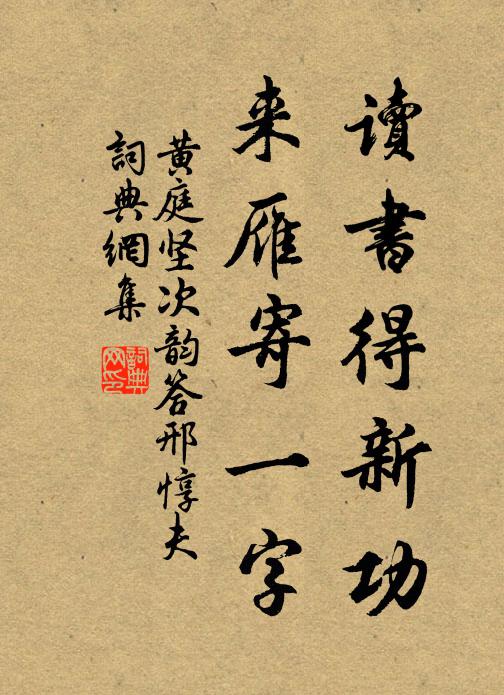 讀書得新功
来雁寄一字
黄庭坚次韵答邢惇夫
詞典網集
詞典网印